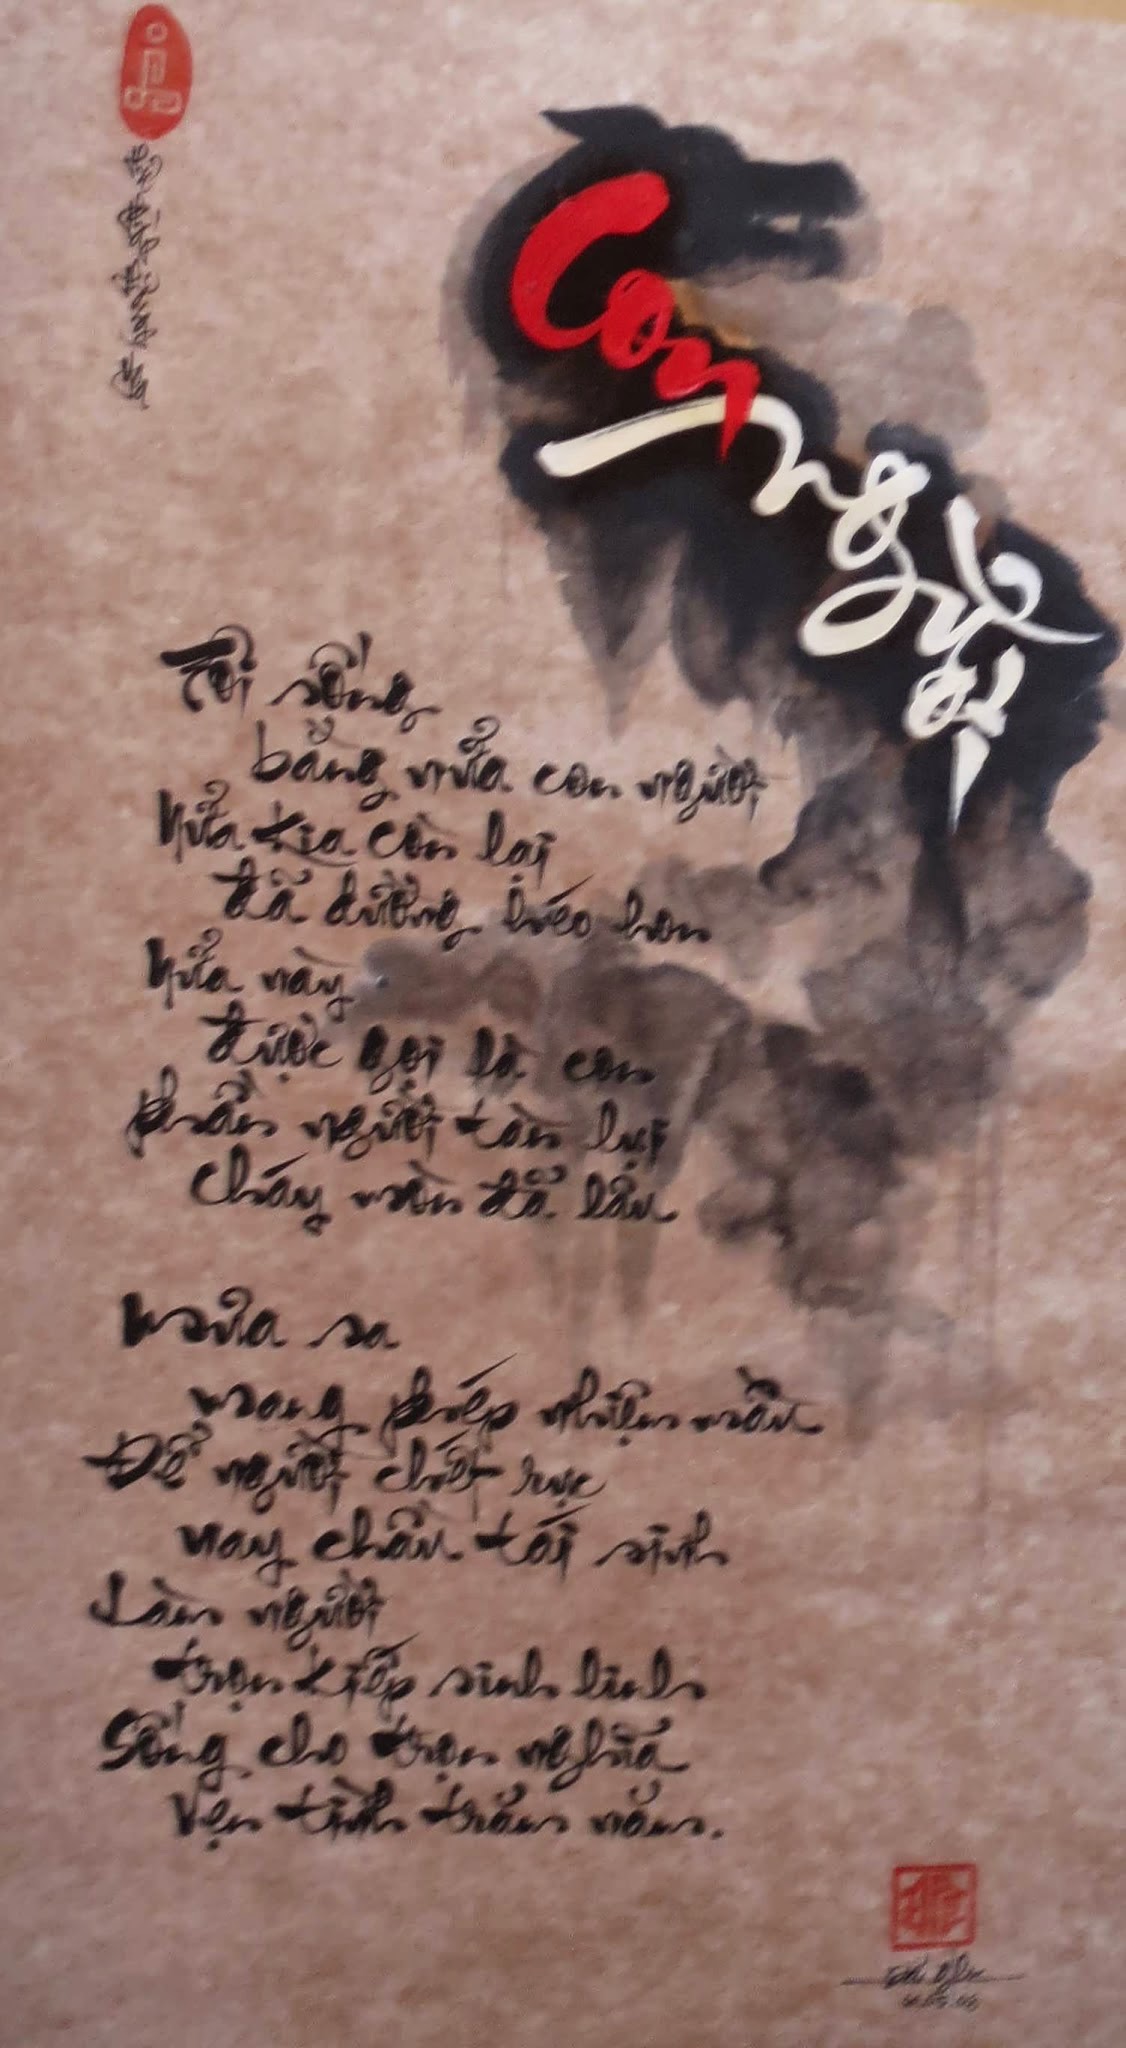 Con
người
Tôi sống
bằng nửa con người
Nửa kia còn lại
đã dường héo hon
Nửa này
được gọi là con
phần người tàn lụi
cháy mòn đã lâu
Mưa sa
mang phép nhiệm mầu
Để người chết rục
nay chầu tái sinh
Làm người
trọn kiếp sinh linh
Sống cho trọn nghĩa
Vẹn tình trăm năm.